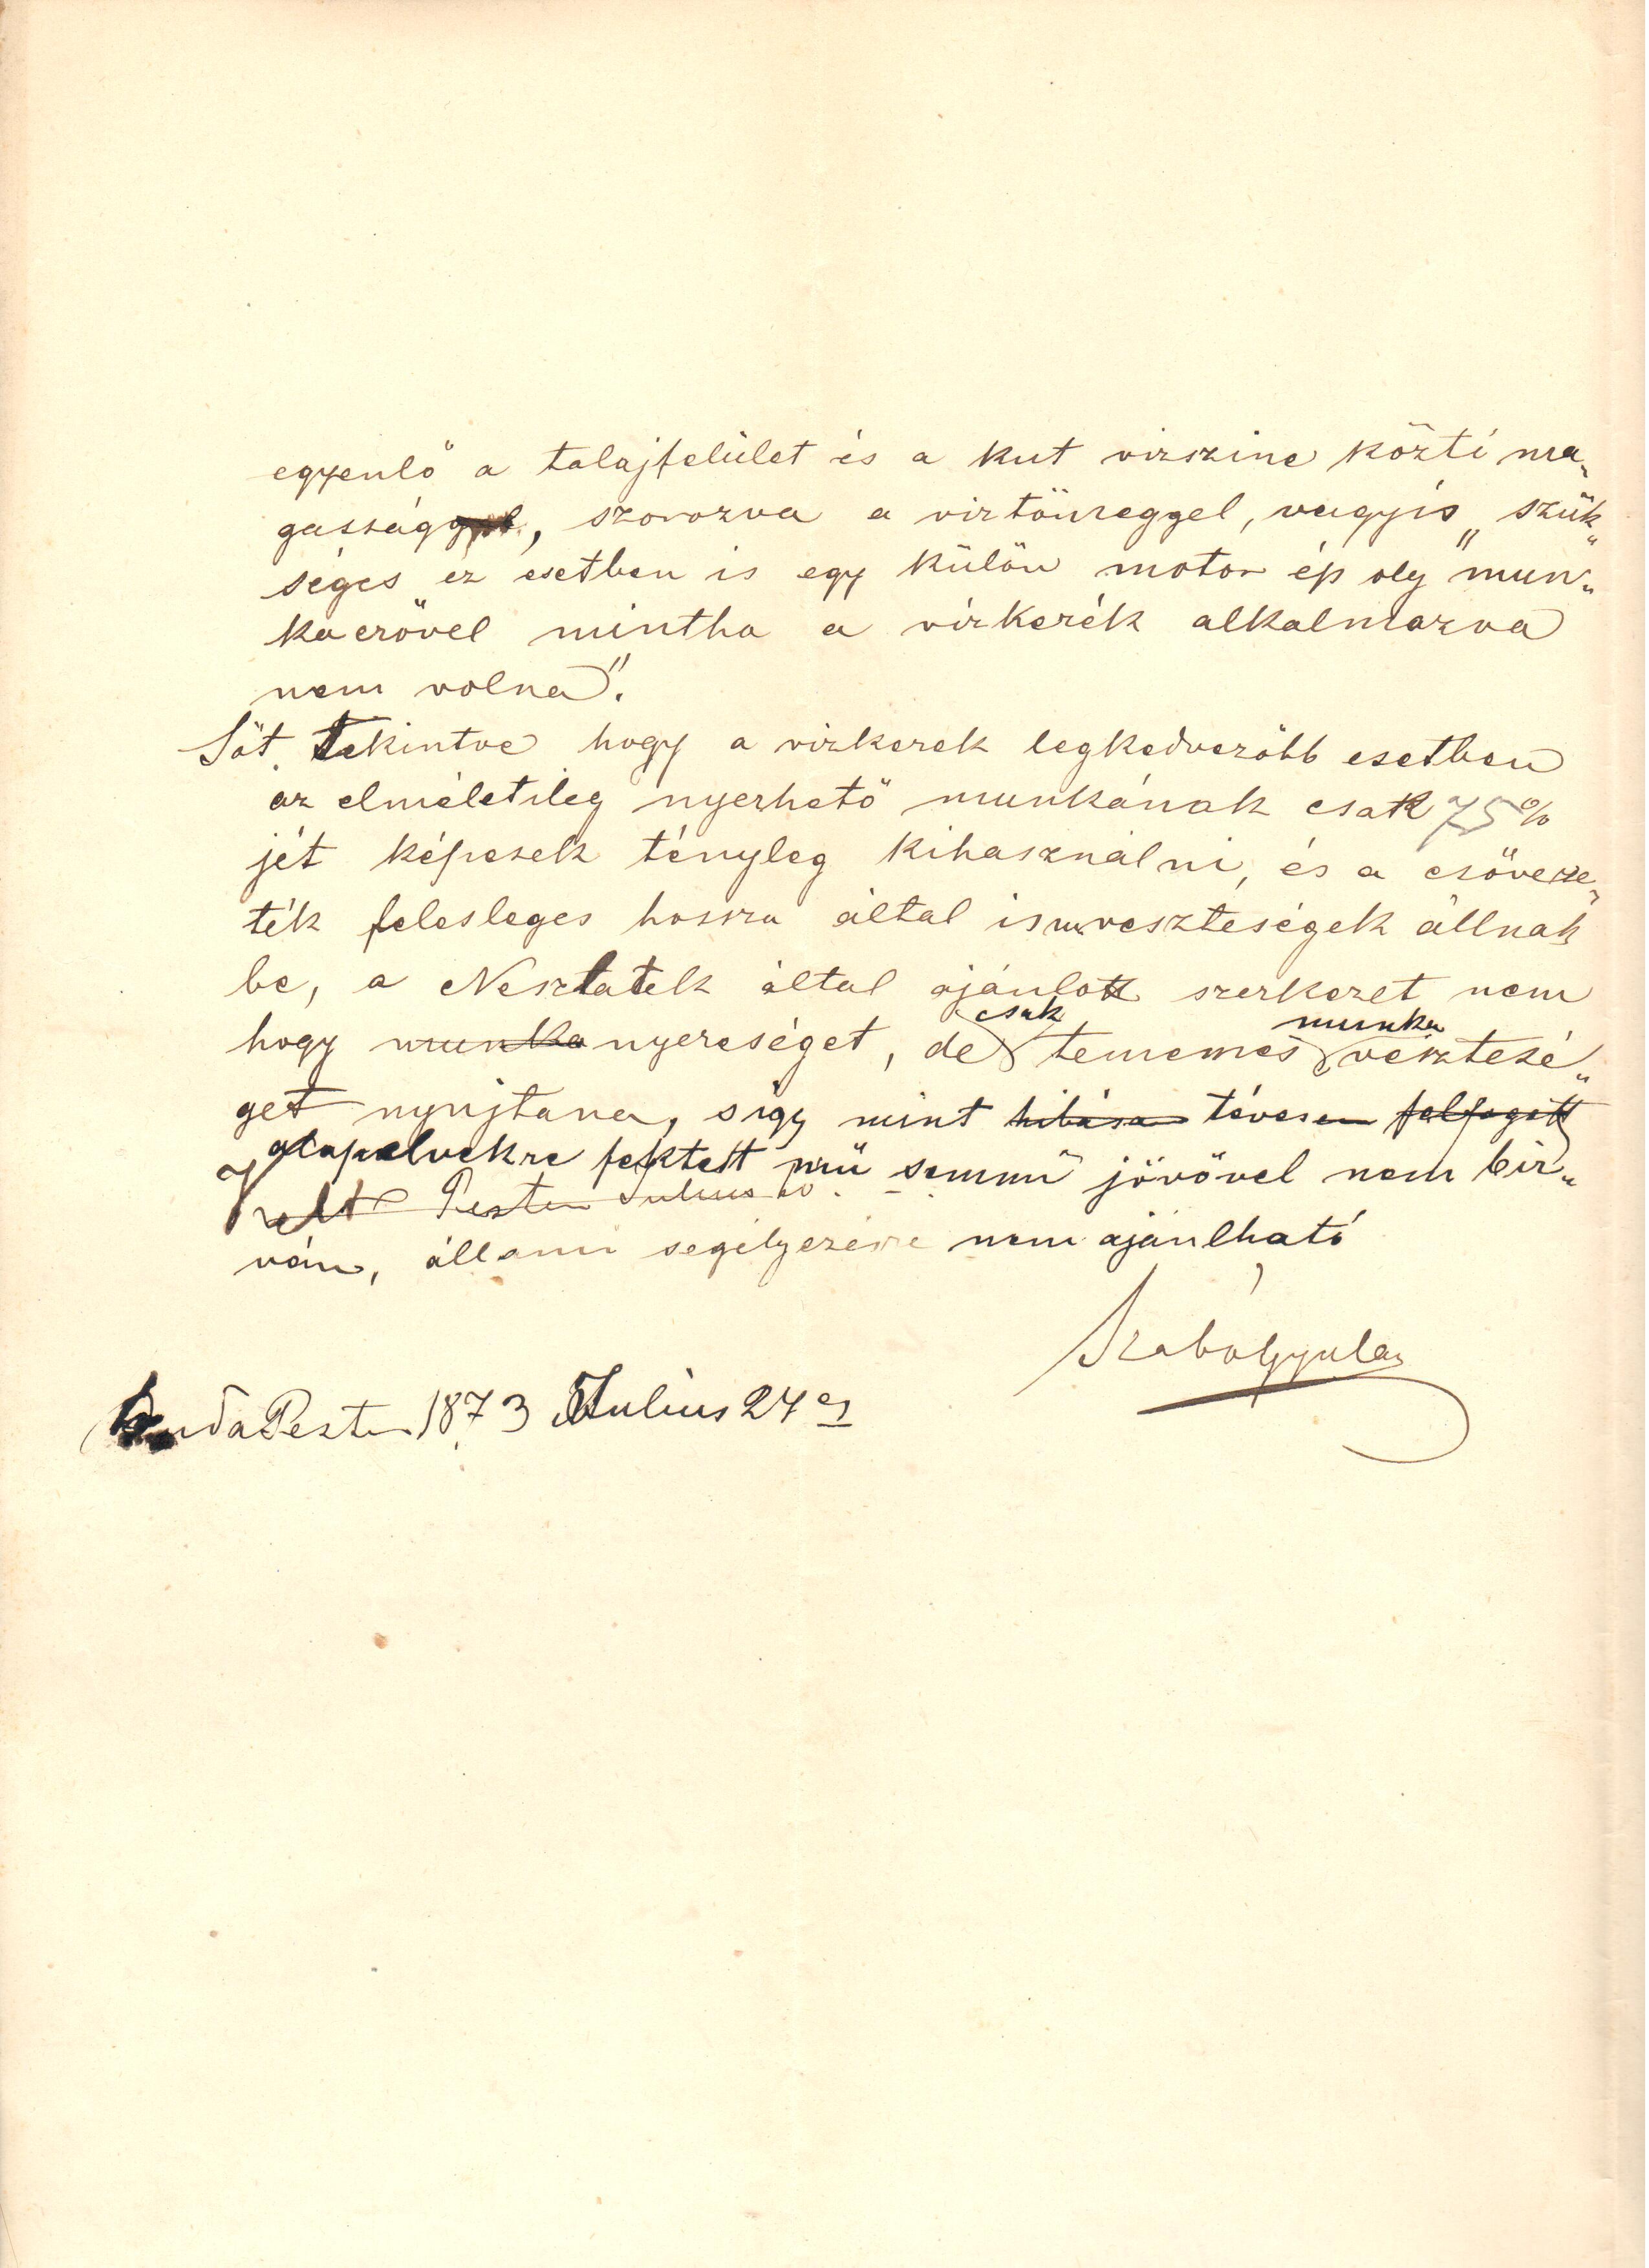 egyenlő a talajfelület és a kut vizszine közti ma„
gasság, szorozva a viztömeggel, vagyis „szük„
séges ez esetben is egy külön motor ép oly mun„
kaerövel mintha a vízkerék alkalmazva
nem volna”.
Sőt tekintve hogy a vizkerek legkedvezőbb esetben
az elméletileg nyerhető munkának csak 75%
jét képesek tényleg kihasználni, és a csöveze„
ték felesleges hossza által is veszteségek állnak
be, a Nesztatek által ajánlott szerkezet nem
csak munka
hogy munkanyereséget, de temémes vesztesé„
get nyujtana, s igy mint hibása tévesen felfogott
alapelvekre fektetett mü semmi jövővel nem bir„
Kelt Pesten Julius
ván, állami segélyezésre nem ajánlható
Szabó Gyula
BudaPesten 1873 Julius 24 én